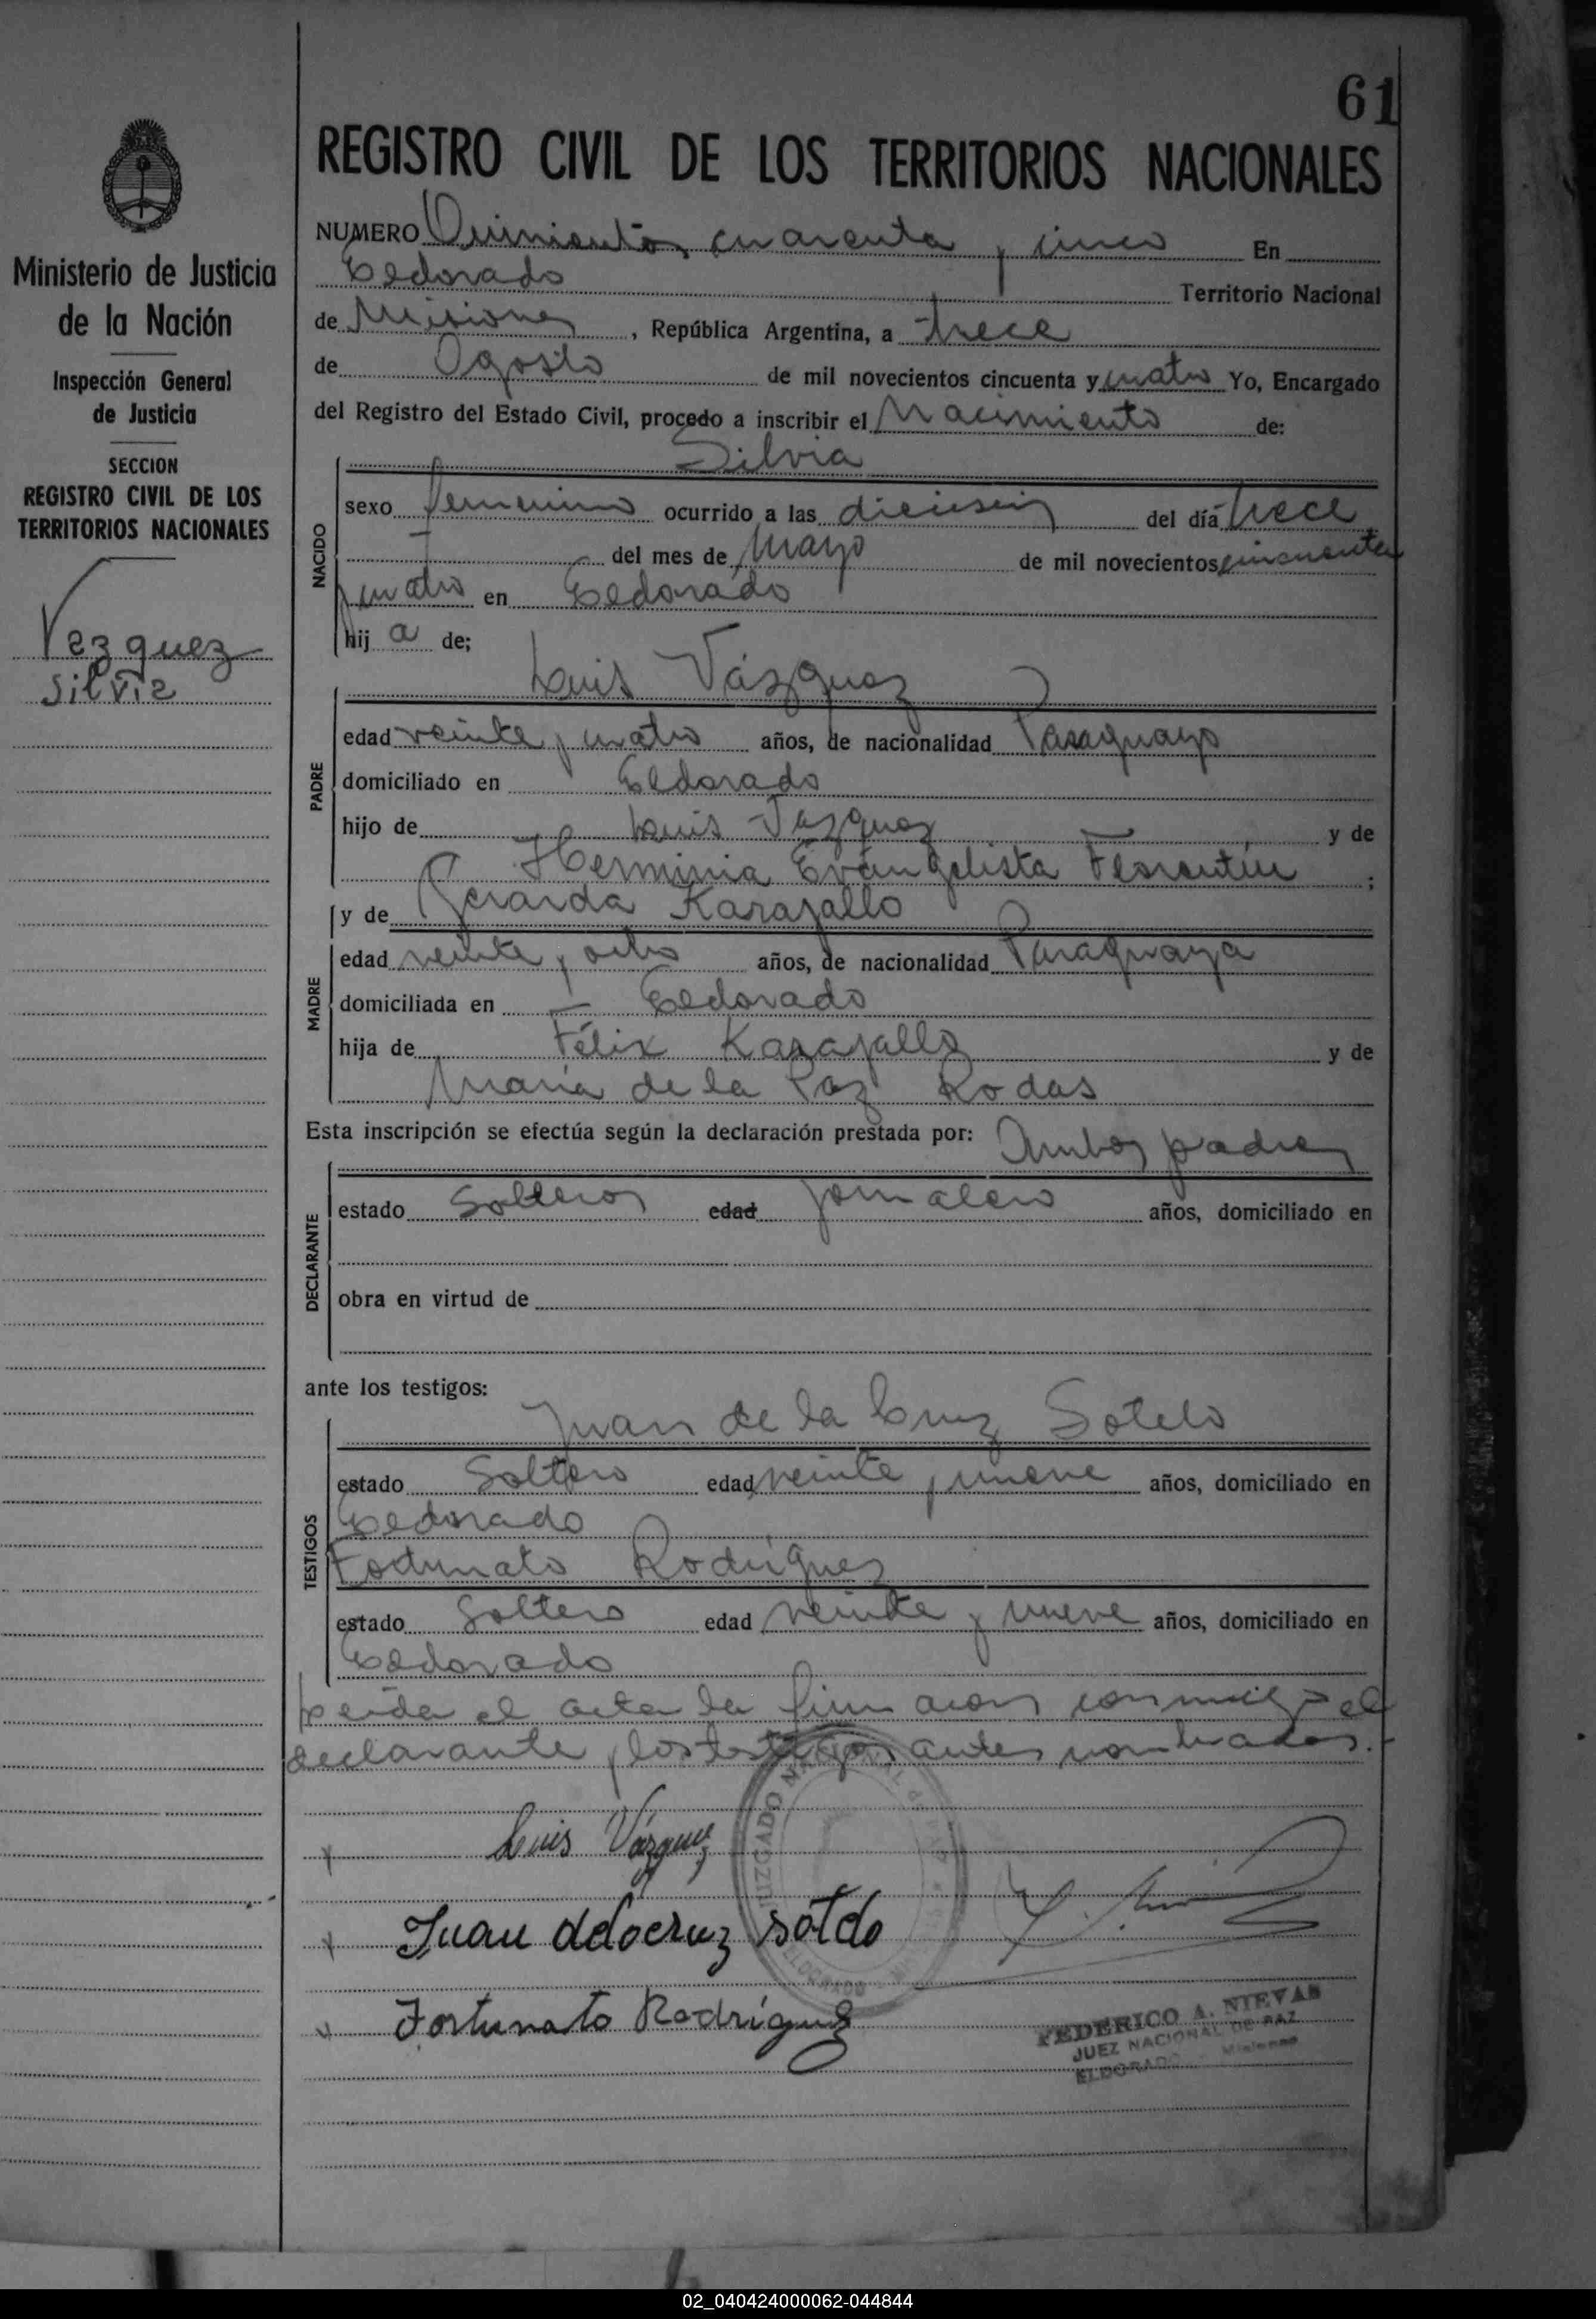 61
REGISTRO CIVIL DE LOS TERRITORIOS NACIONALES
Ministerio de Justicia
de la Nación
Inspección General
de Justicia
SECCION
REGISTRO CIVIL DE LOS
TERRITORIOS NACIONALES
Vezquez
Silvia
NUMERO Quinientos cuarenta y cinco En
Eldorado Territorio Nacional
de Misiones, República Argentina, a trece
de Agosto de mil novecientos cincuenta y cuatro Yo, Encargado
del Registro del Estado Civil, procedo a inscribir el Nacimiento de:
Silvia
NACIDO
sexo femenino ocurrido a las dieciseis del día trece
del mes de Mayo de mil novecientos cincuenta
y cuatro en Eldorado
hij a de;
Luis Vázquez
PADRE
edad veinte y cuatro años, de nacionalidad Paraguayo
domiciliado en Eldorado
hijo de Luis Vazquez y de
Herminia Evangelista Florentin ;
y de Gerarda Karajallo
MADRE
edad veinte y ocho años, de nacionalidad Paraguaya
domiciliada en — Eldorado
hija de Félix Karajallo y de
Maria de la Paz Rodas
Esta inscripción se efectúa según la declaración prestada por: Ambos padres
DECLARANTE
estado Solteros edad jornalero años, domiciliado en
obra en virtud de
ante los testigos:
Juan de la Cruz Sotelo
TESTIGOS
estado Soltero edad veinte y nueve años, domiciliado en
Eldorado
Fortunato Rodríguez
estado Soltero edad veinte y nueve años, domiciliado en
Eldorado
Leida el acta la firmaron conmigo el
declarante y los testigos antes nombrados.-
Luis Vázquez
Juan delacruz sotelo
Fortunato Rodríguez
JUZGADO
ELDORADO
FEDERICO A. NIEVAS
JUEZ NACIONAL DE PAZ
ELDORADO - Misiones
02_040424000062-044844